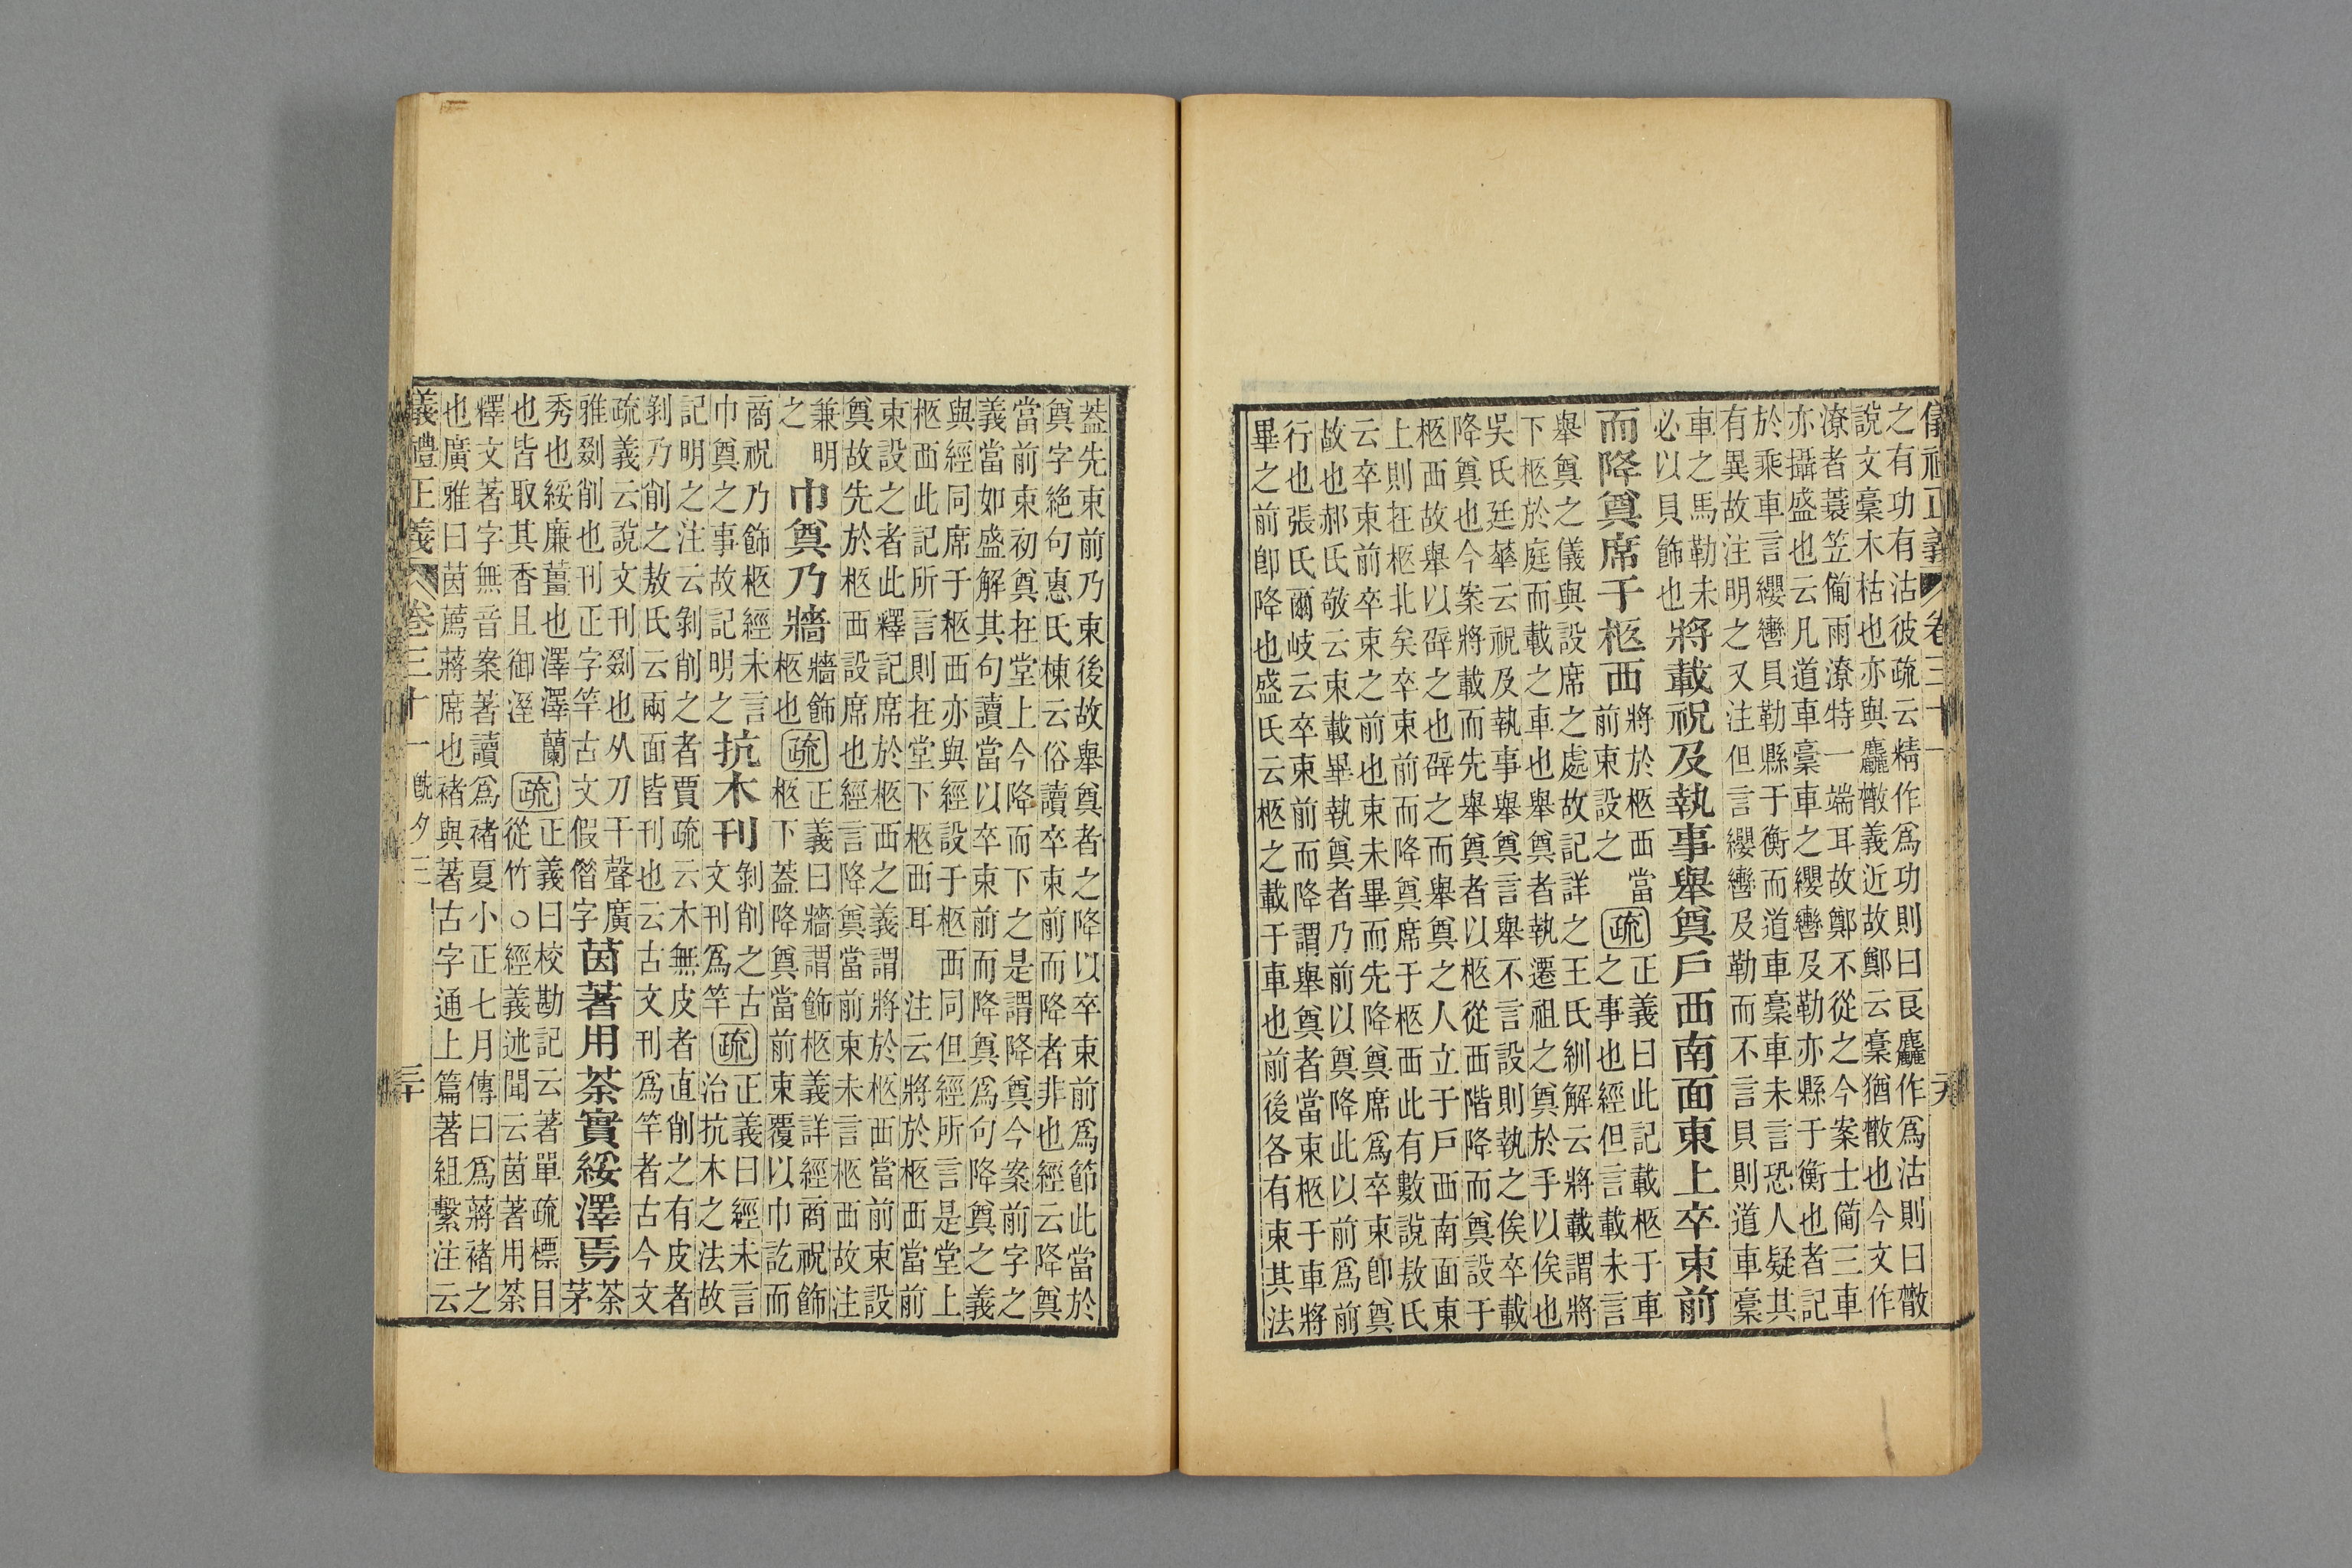 儀禮正義 卷三十一
之有功有沽彼疏云精作爲功則曰良麤作爲沽則曰㪚
說文稾木枯也亦與麤㪚義近故鄭云稾猶㪚也今文作
潦者蓑笠備雨潦特一端耳故鄭不從之今案士備三車
亦攝盛也云凡道車稾車之纓轡及勒亦縣于衡也者記
於乘車言纓轡貝勒縣于衡而道車稾車未言恐人疑其
有異故注明之又注但言纓轡及勒而不言貝則道車稾
車之馬勒未
必以貝飾也
將載祝及執事舉奠戶西南面東上卒束前
而降奠席于柩西
將於柩西當
前束設之
疏
正義曰此記載柩于車
之事也經但言載未言
舉奠之儀與設席之處故記詳之王氏紃解云將載謂將
下柩於庭而載之車也舉奠者執遷祖之奠於手以俟也
吳氏廷華云祝及執事舉奠言舉不言設則執之俟卒載
降奠也今案將載而先舉奠者以柩從西階降而奠設于
柩西故舉以辟之也辟之而舉奠之人立于戶西南面東
上則在柩北矣卒束前而降奠席于柩西此有數說敖氏
云卒束前卒束之前也束未畢而先降奠席爲卒束卽奠
故也郝氏敬云束載畢執奠者乃前以奠降此以前爲前
行也張氏爾岐云卒束前而降謂舉奠者當束柩于車將
畢之前卽降也盛氏云柩之載于車也前後各有束其法
蓋先束前乃束後故舉奠者之降以卒束前爲節此當於
奠字絕句惠氏棟云俗讀卒束前而降者非也經云降奠
當前束初奠在堂上今降而下之是謂降奠今案前字之
義當如盛解其句讀當以卒束前而降奠爲句降奠之義
與經同席于柩西亦與經設于柩西同但經所言是堂上
柩西此記所言則在堂下柩西耳 注云將於柩西當前
束設之者此釋記席於柩西之義謂將於柩西當前束設
奠故先於柩西設席也經言降奠當前束未言柩西故注
兼明
之
巾奠乃牆
牆飾
柩也
疏
正義曰牆謂飾柩義詳經商祝飾
柩下蓋降奠當前束覆以巾訖而
商祝乃飾柩經未言
巾奠之事故記明之
抗木刊
剝削之古
文刊爲竿
疏
正義曰經未言
治抗木之法故
記明之注云剝削之者賈疏云木無皮者直削之有皮者
剝乃削之敖氏云兩面皆刊也云古文刊爲竿者古今文
疏義云說文刊剟也从刀干聲廣
雅剟削也刊正字竿古文假僭字
茵著用荼實綏澤焉
荼
茅
秀也綏廉薑也澤澤蘭
也皆取其香且御溼
疏
正義曰校勘記云著單疏標目
從竹○經義述聞云茵著用荼
釋文著字無音案著讀爲褚夏小正七月傳曰爲蔣褚之
也廣雅曰茵薦蔣席也褚與著古字通上篇著組繫注云
儀禮正義 卷三十一 旣夕三 三十